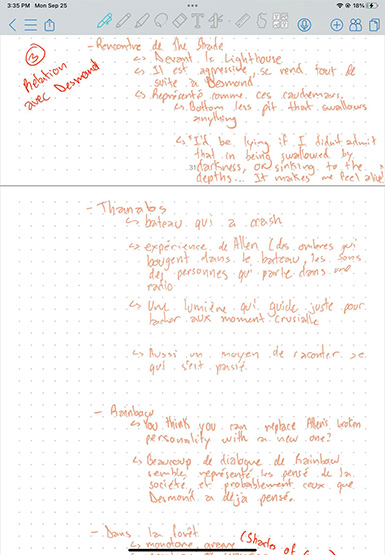 3:35 PM Mon Sep 25
18%
3
Relation
avec Desmond
- Rencontre de The Shade
↳ Devant le Lighthouse
↳ Il est aggressive, se rend tout de
suite à Desmond
↳ Représenté comme ces cauchemars.
↳ Bottom less pit that swallows
anything
↳ "I'd be lying if I didn't admit
that in being swallowed by
darkness, or sinking to the
depths... It makes me feel alive"
- Thanabs
↳ bateau qui a crash
↳ expérience de Allen (des ombres qui
bougent dans le bateau, les sons
des personnes qui parle dans une
radio
↳ Une lumière qui guide juste pour
aux moment crusialle
↳ Aussi un moyen de raconter ce
qui s'est passé.
- Rainbow
↳ You think you can replace Allen's
personality with a new one?
↳ Beaucoup de dialogue de Rainbow
semble représenté les pensé de la
société, et probablement ceux que
Desmond a déjà pensé.
- Dans la forêt
↳ monotone (Shades of